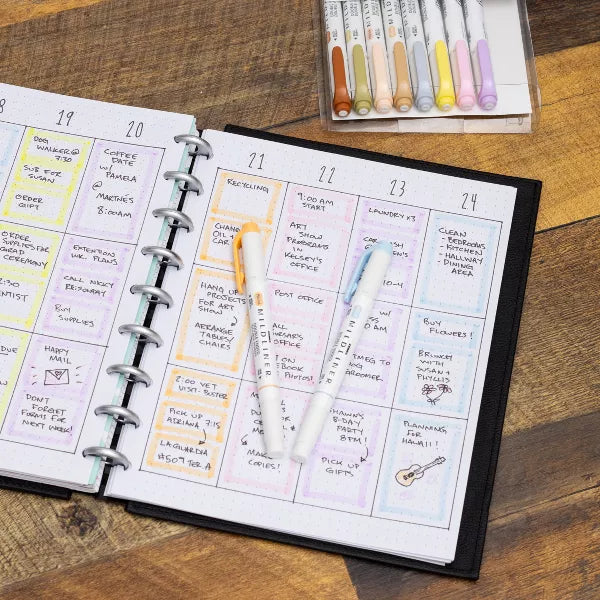 8
19
20
DOG
WALKER @
7:30
SUB FOR
SUSAN
ORDER
GIFT
COFFEE
DATE
W/
PAMELA
@
MARTNE'S
8:00AM
ORDER
SUPPLIES FOR
GRAD
CEREMONY
2:30
ENTIST
EXTENTION
WK. PLANS
CALL NICKY
RE: SUNDAY
BUY
SUPPLIES
DUE
HAPPY
MAIL
DON'T
FORGET
FORMS FOR
NEXT WEEK!
21
22
23
24
RECYCLING
OIL
CAR
HANG UP
PROJECTS
FOR ART
SHOW
ARRANGE
TABLES/
CHAIRS
2:00 VET
VISIT- BUSTER
PICK UP
ADRIANA 7:15
LAGUARDIA
#509 TER. A
9:00 AM
START
ART
SHOW
PROGRAMS
IN
KELSEY'S
OFFICE
POST OFFICE
OFFICE
ON
BOOK
PHOTOS!
COPIES!
LAUNDRY X3
10-4
AM
GROOMER
B-DAY
PARTY
8PM!
PICK UP
GIFTS
CLEAN
- BEDROOMS
- KITCHEN
- HALLWAY
- DINING
AREA
BUY
FLOWERS!
BRUNCH
WITH
SUSAN +
PHYLLIS
PLANNING
FOR
HAWAII!
MILDLINER
MILDLINER